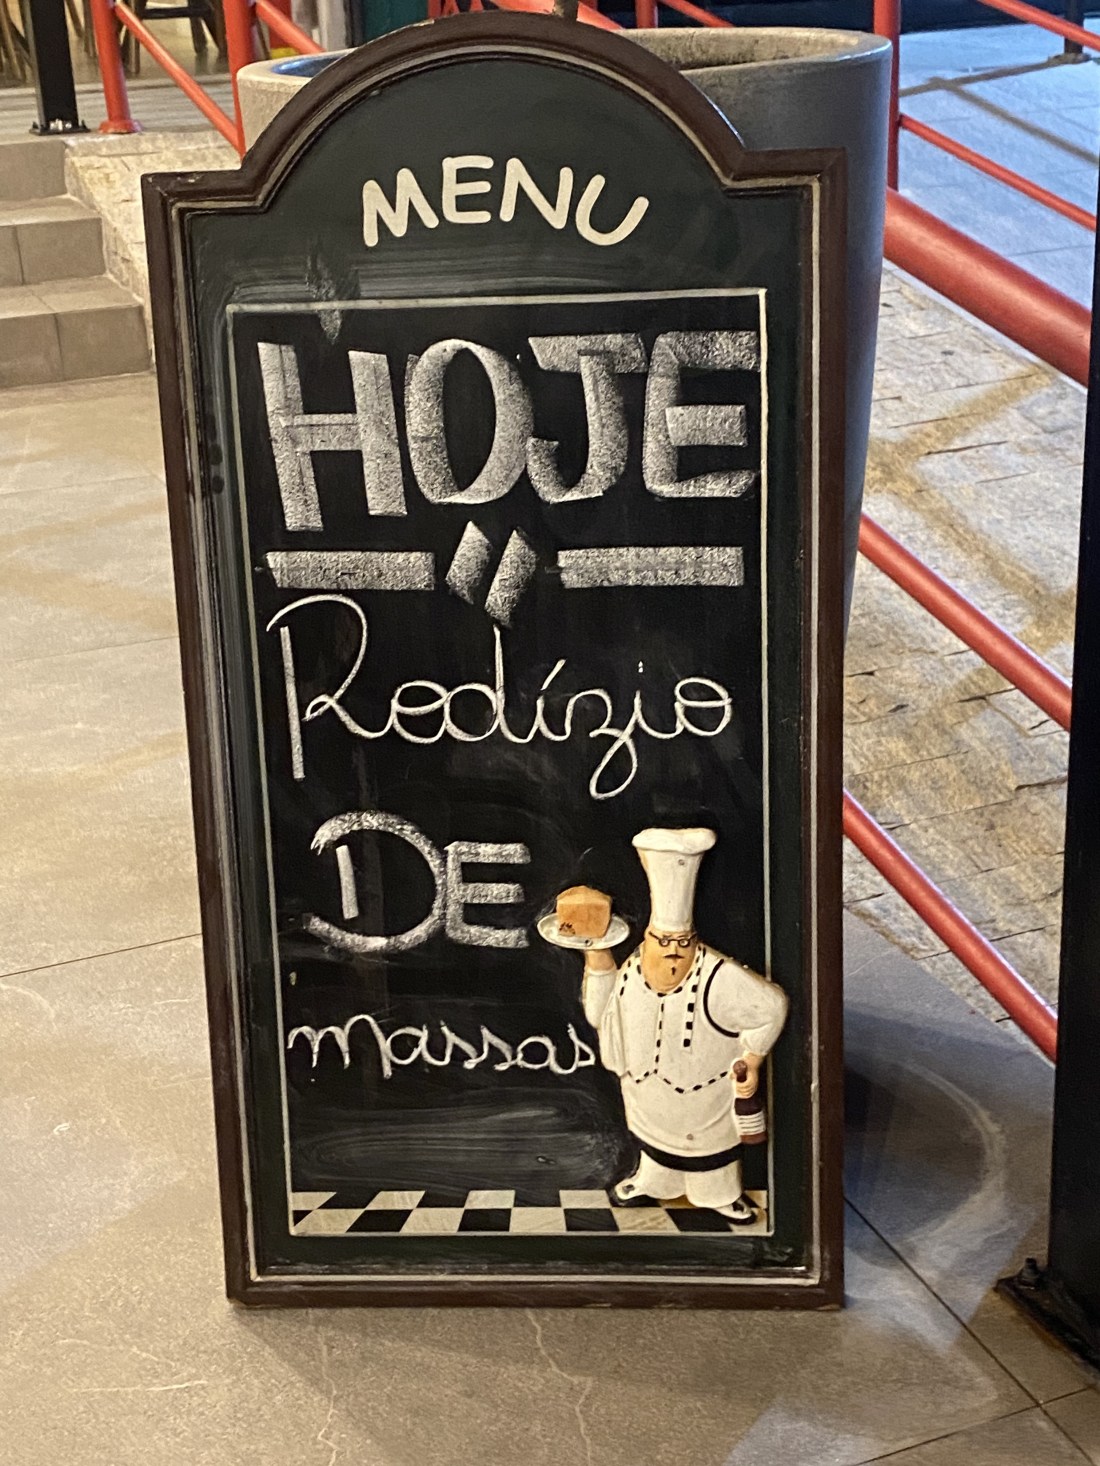 MENU
HOJE
Rodízio
DE
massas